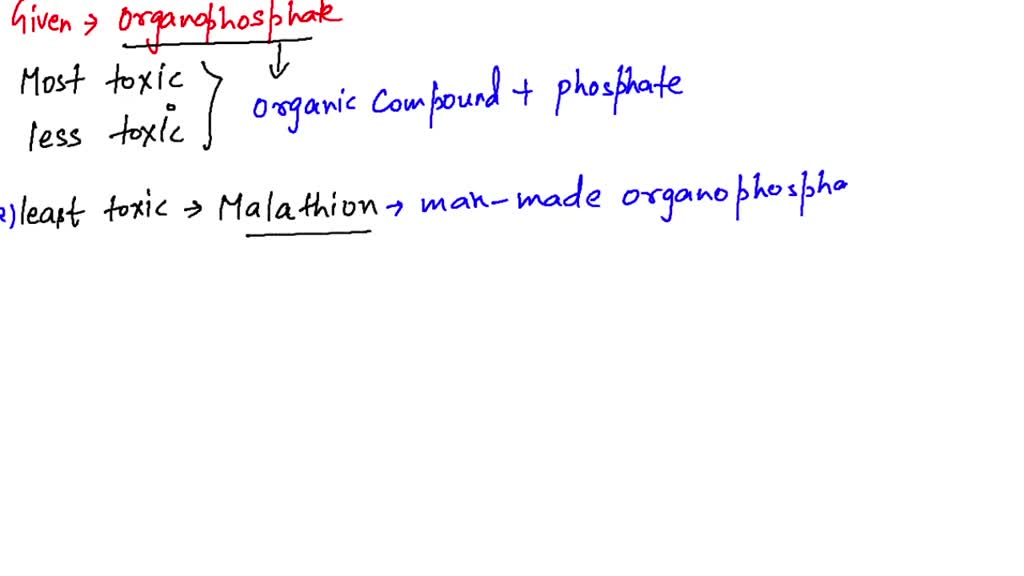 Given → organophosphate
Most toxic
less toxic
organic compound + phosphate
2) least toxic → Malathion → man-made organophospha